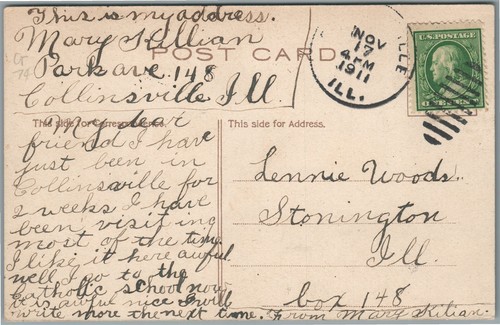 This is my address.
Mary Killian
POST CARD
Park ave. 148
Collinsville Ill.
VILLE
NOV
17
4 PM
1911
ILL.
U.S. POSTAGE
ONE CENT
This side for Correspondence.
This side for Address.
My dear
friend I have
just been in
Collinsville for
2 weeks I have
been visiting
most of the time.
I like it here awful
well I go to the
Catholic school now
it is awful nice I will
write more the next time. From Mary Kilian.
Lennie Woods.
Stonington
Ill.
box 148